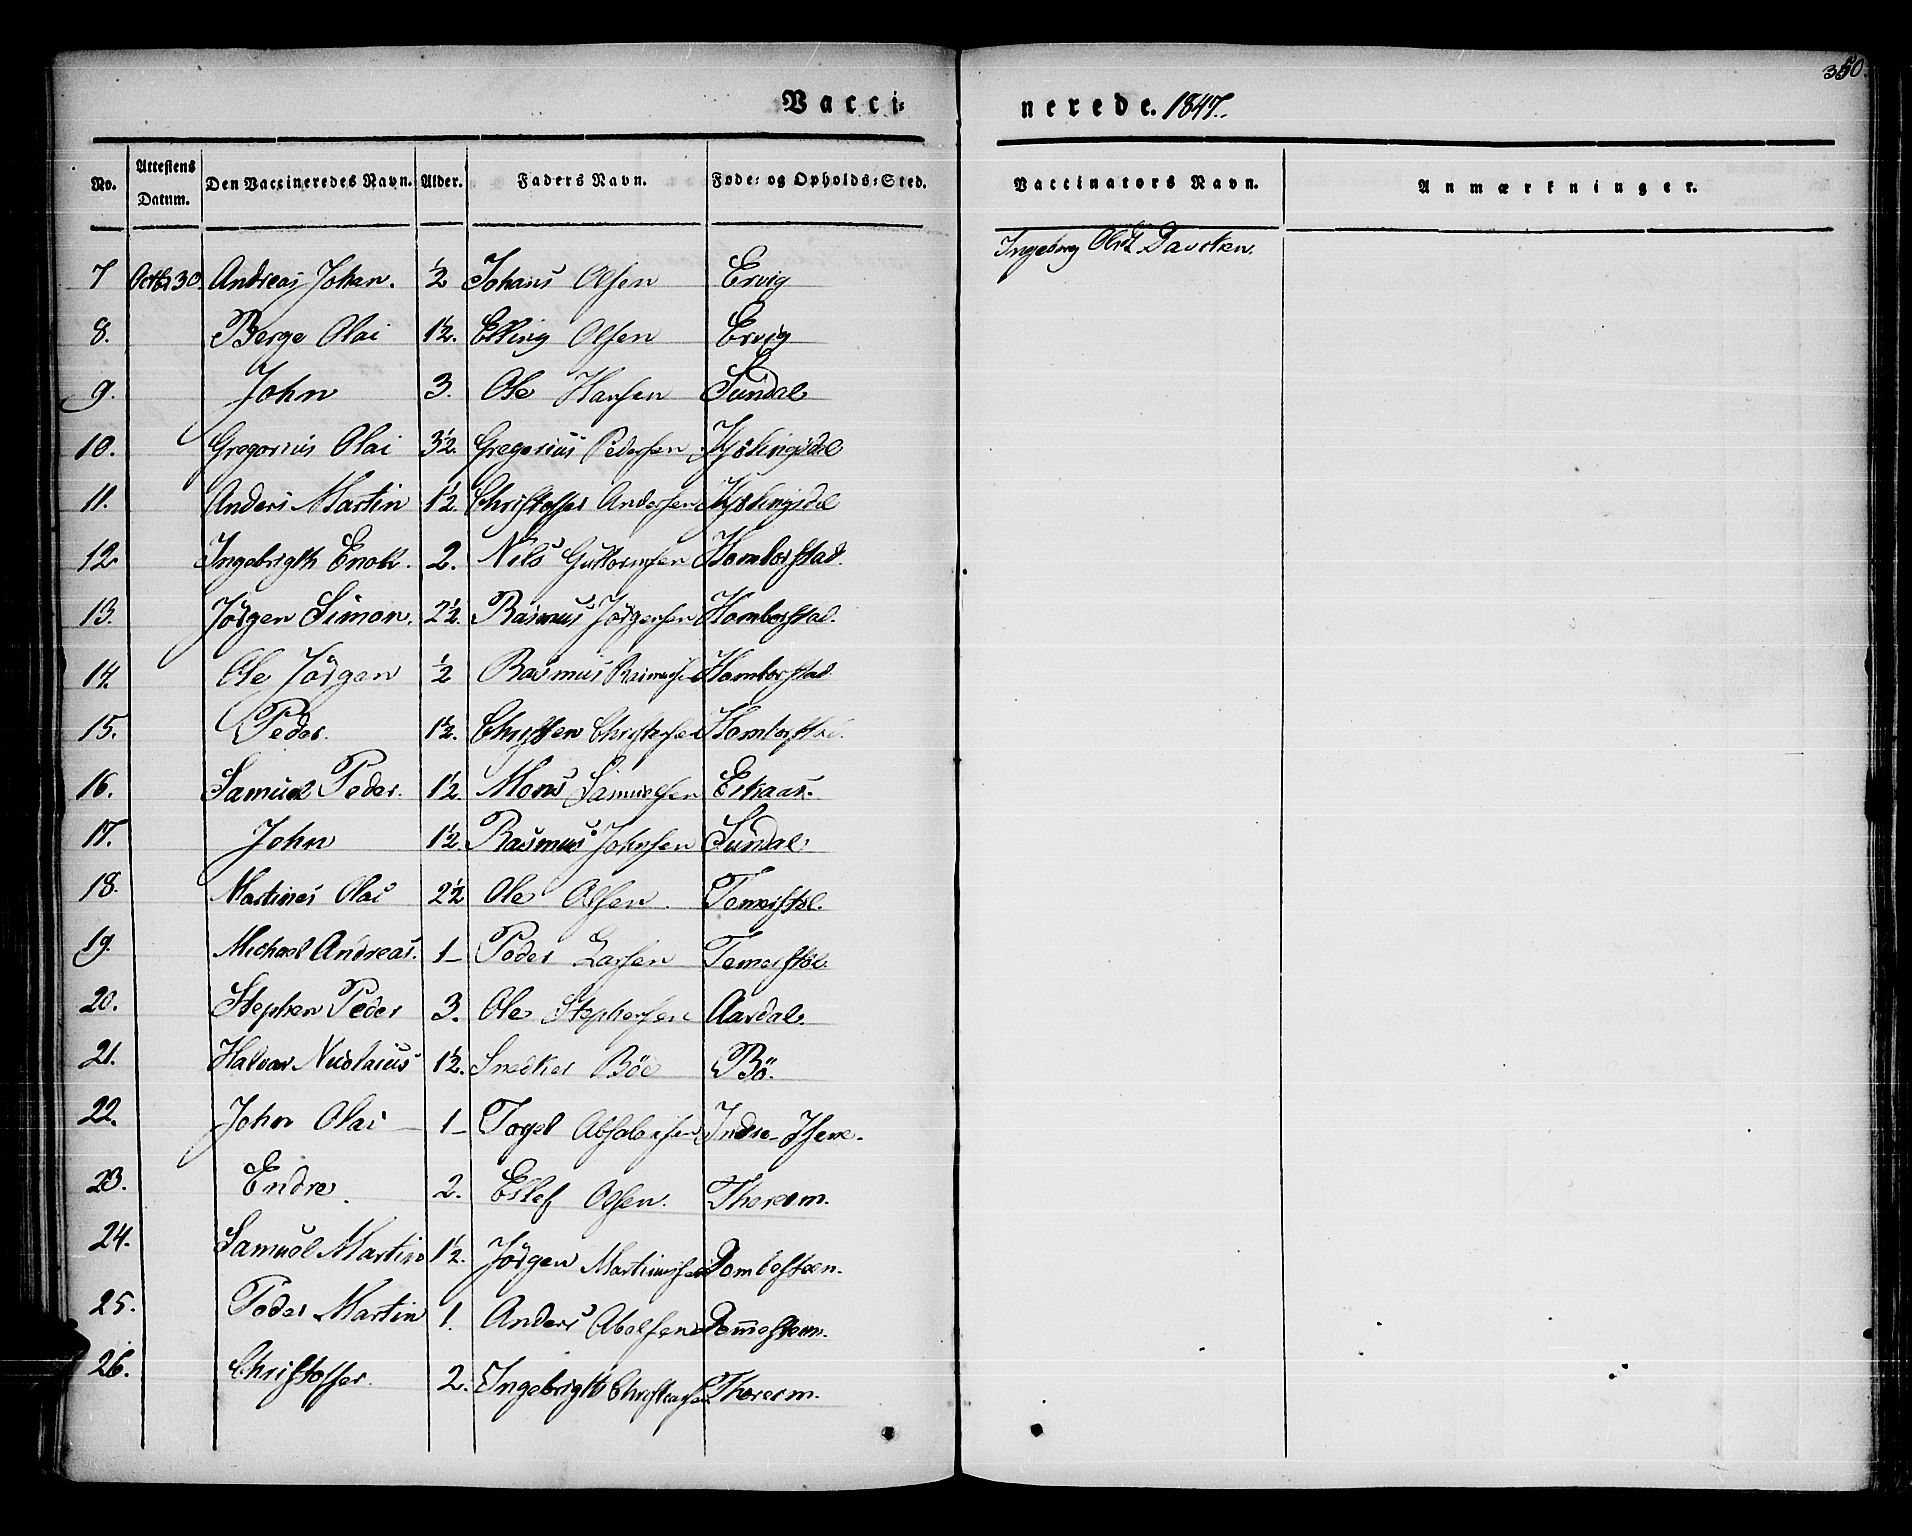 350.
Vacci-
nerede. 1847.
No. Attestens Datum. Den Vaccineredes Navn. Alder. Faders Navn. Føde- og Opholds-Sted. Vaccinators Navn. Anmærkninger.
Ingeborg Olsd.
7 Octb 30. Andreas Johan. ½ Johans Olsen Ervig
8. Berge Olai 1½. Elling Olsen Ervig
9. John 3. Ole Hansen Sundal
10. Gregorius Olai 3½. Gregorius Pedersen
11. Anders Martin 1½. Christoffer Andersen
12 Ingebrigth Enok. 2. Nils Guttormsen Homborstad.
13. Jörgen Simon. 2½. Rasmus Jörgensen Homborstad.
14. Ole Jörgen ½ Rasmus Rasmussen Homborstad
15. Peder. 1½. Christen Christensen Homborstad.
16. Samuel Peder. 1½ Mons Samuelsen Eskaar.
17. John 1½. Rasmus Johnsen Sundal.
18. Martines Olai 2½ Ole Olsen. Temerstøl.
19. Michael Andreas. 1- Peder Larsen Temerstøl.
20. Stephen Peder 3. Ole Stephensen Aardal.
21. Halvor Nicolaius 1½. Snedker Böe Bö.
22. John Olai 1- Torgel Absalonsen Indre-
23. Endre. 2. Ellef Olsen.
24. Samuel Martin 1½. Jörgen Martinussen Dombesteen.
25. Peder Martin 1. Anders Abelsen
26. Christoffer. 2. Ingebrigth Christensen